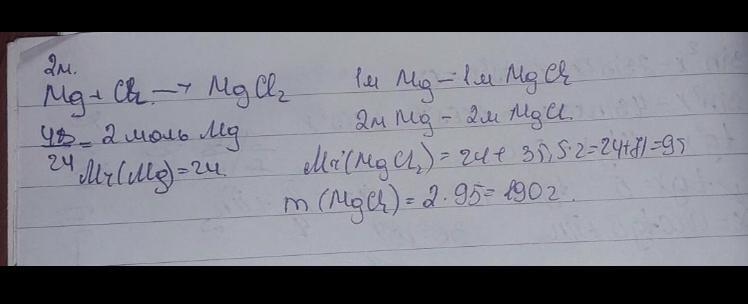 2м.
Mg + Cl₂ → MgCl₂
48/24 = 2 моль Mg
Mr(Mg) = 24
1м Mg – 1м MgCl₂
2м Mg – 2м MgCl.
Mr(MgCl₂) = 24 + 35,5·2 = 24 + 71 = 95
m(MgCl₂) = 2 · 95 = 190 г.